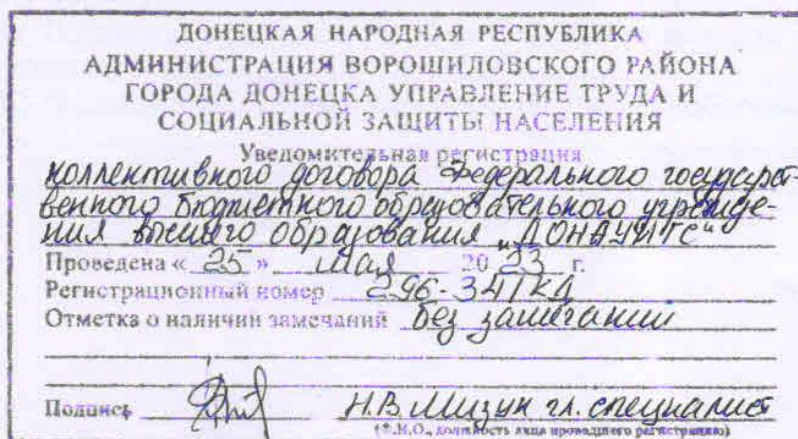 ДОНЕЦКАЯ НАРОДНАЯ РЕСПУБЛИКА
АДМИНИСТРАЦИЯ ВОРОШИЛОВСКОГО РАЙОНА
ГОРОДА ДОНЕЦКА УПРАВЛЕНИЕ ТРУДА И
СОЦИАЛЬНОЙ ЗАЩИТЫ НАСЕЛЕНИЯ
Уведомительная регистрация
коллективного договора Федерального государст-
венного бюджетного образовательного учрежде-
ния высшего образования "ДОНАУИГС"
Проведена « 25 » мая 20 23 г.
Регистрационный номер 296-34/КД
Отметка о наличии замечаний без замечаний
Подпись Н.В. Мизун гл. специалист
(Ф.И.О., должность лица проводшего регистрацию)